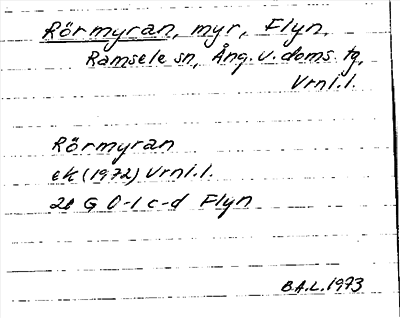 Rörmyran, myr, Flyn.
Ramsele sn, Ång. v. doms. tg,
Vrnl.l.
Rörmyran
ek (1972) Vrnl.l.
20 G 0-1 c-d Flyn
B.A.L. 1973